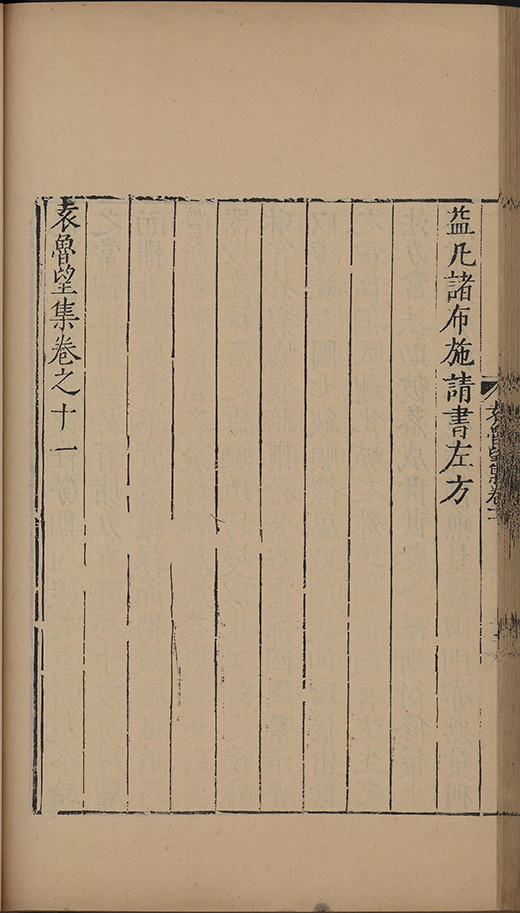 益凡諸布施請書左方
袁魯望集卷之十一